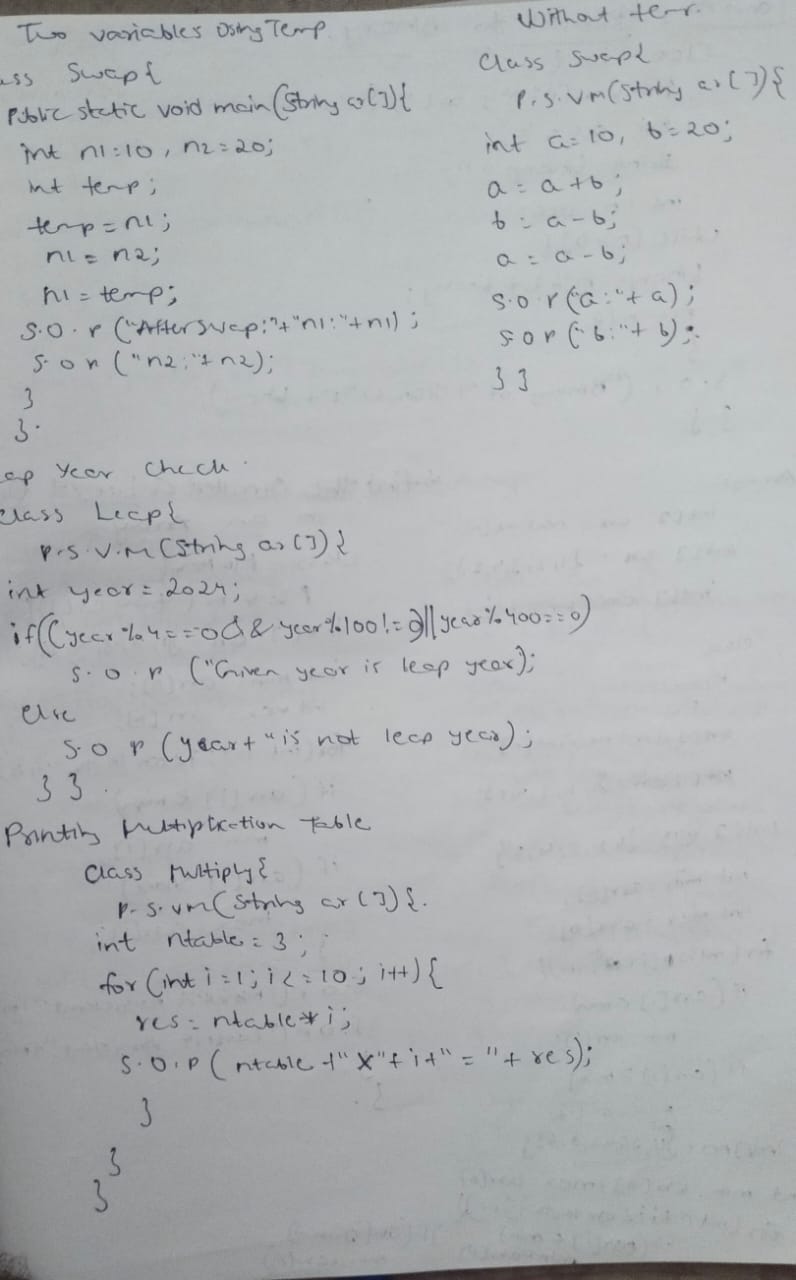 Two variables Using Temp
ass Swap{
Public static void main(String ar[]){
int n1=10, n2=20;
int temp;
temp=n1;
n1=n2;
n1=temp;
S.O.P("After swap:"+"n1:"+n1);
S.o.p("n2:"+n2);
}
}
Without tem.
Class Swap{
P.S.V.m(String ar[]){
int a=10, b=20;
a=a+b;
b=a-b;
a=a-b;
S.o.p("a:"+a);
S o p("b:"+b);
}}
eap Year Check
Class Leap{
P.S.V.M(String ar[]){
int year=2024;
if((year%4==0&&year%100!=0)||year%400==0)
S.o.p("Given year is leap year);
else
S.O p(year+"is not leap year);
}}
Printing Multiplication Table
Class Multiply{
P.S.vm(String ar[]){
int ntable=3;
for(int i=1;i<=10;i++){
res=ntable*i;
S.O.P(ntable+"X"+i+"="+res);
}
}
}